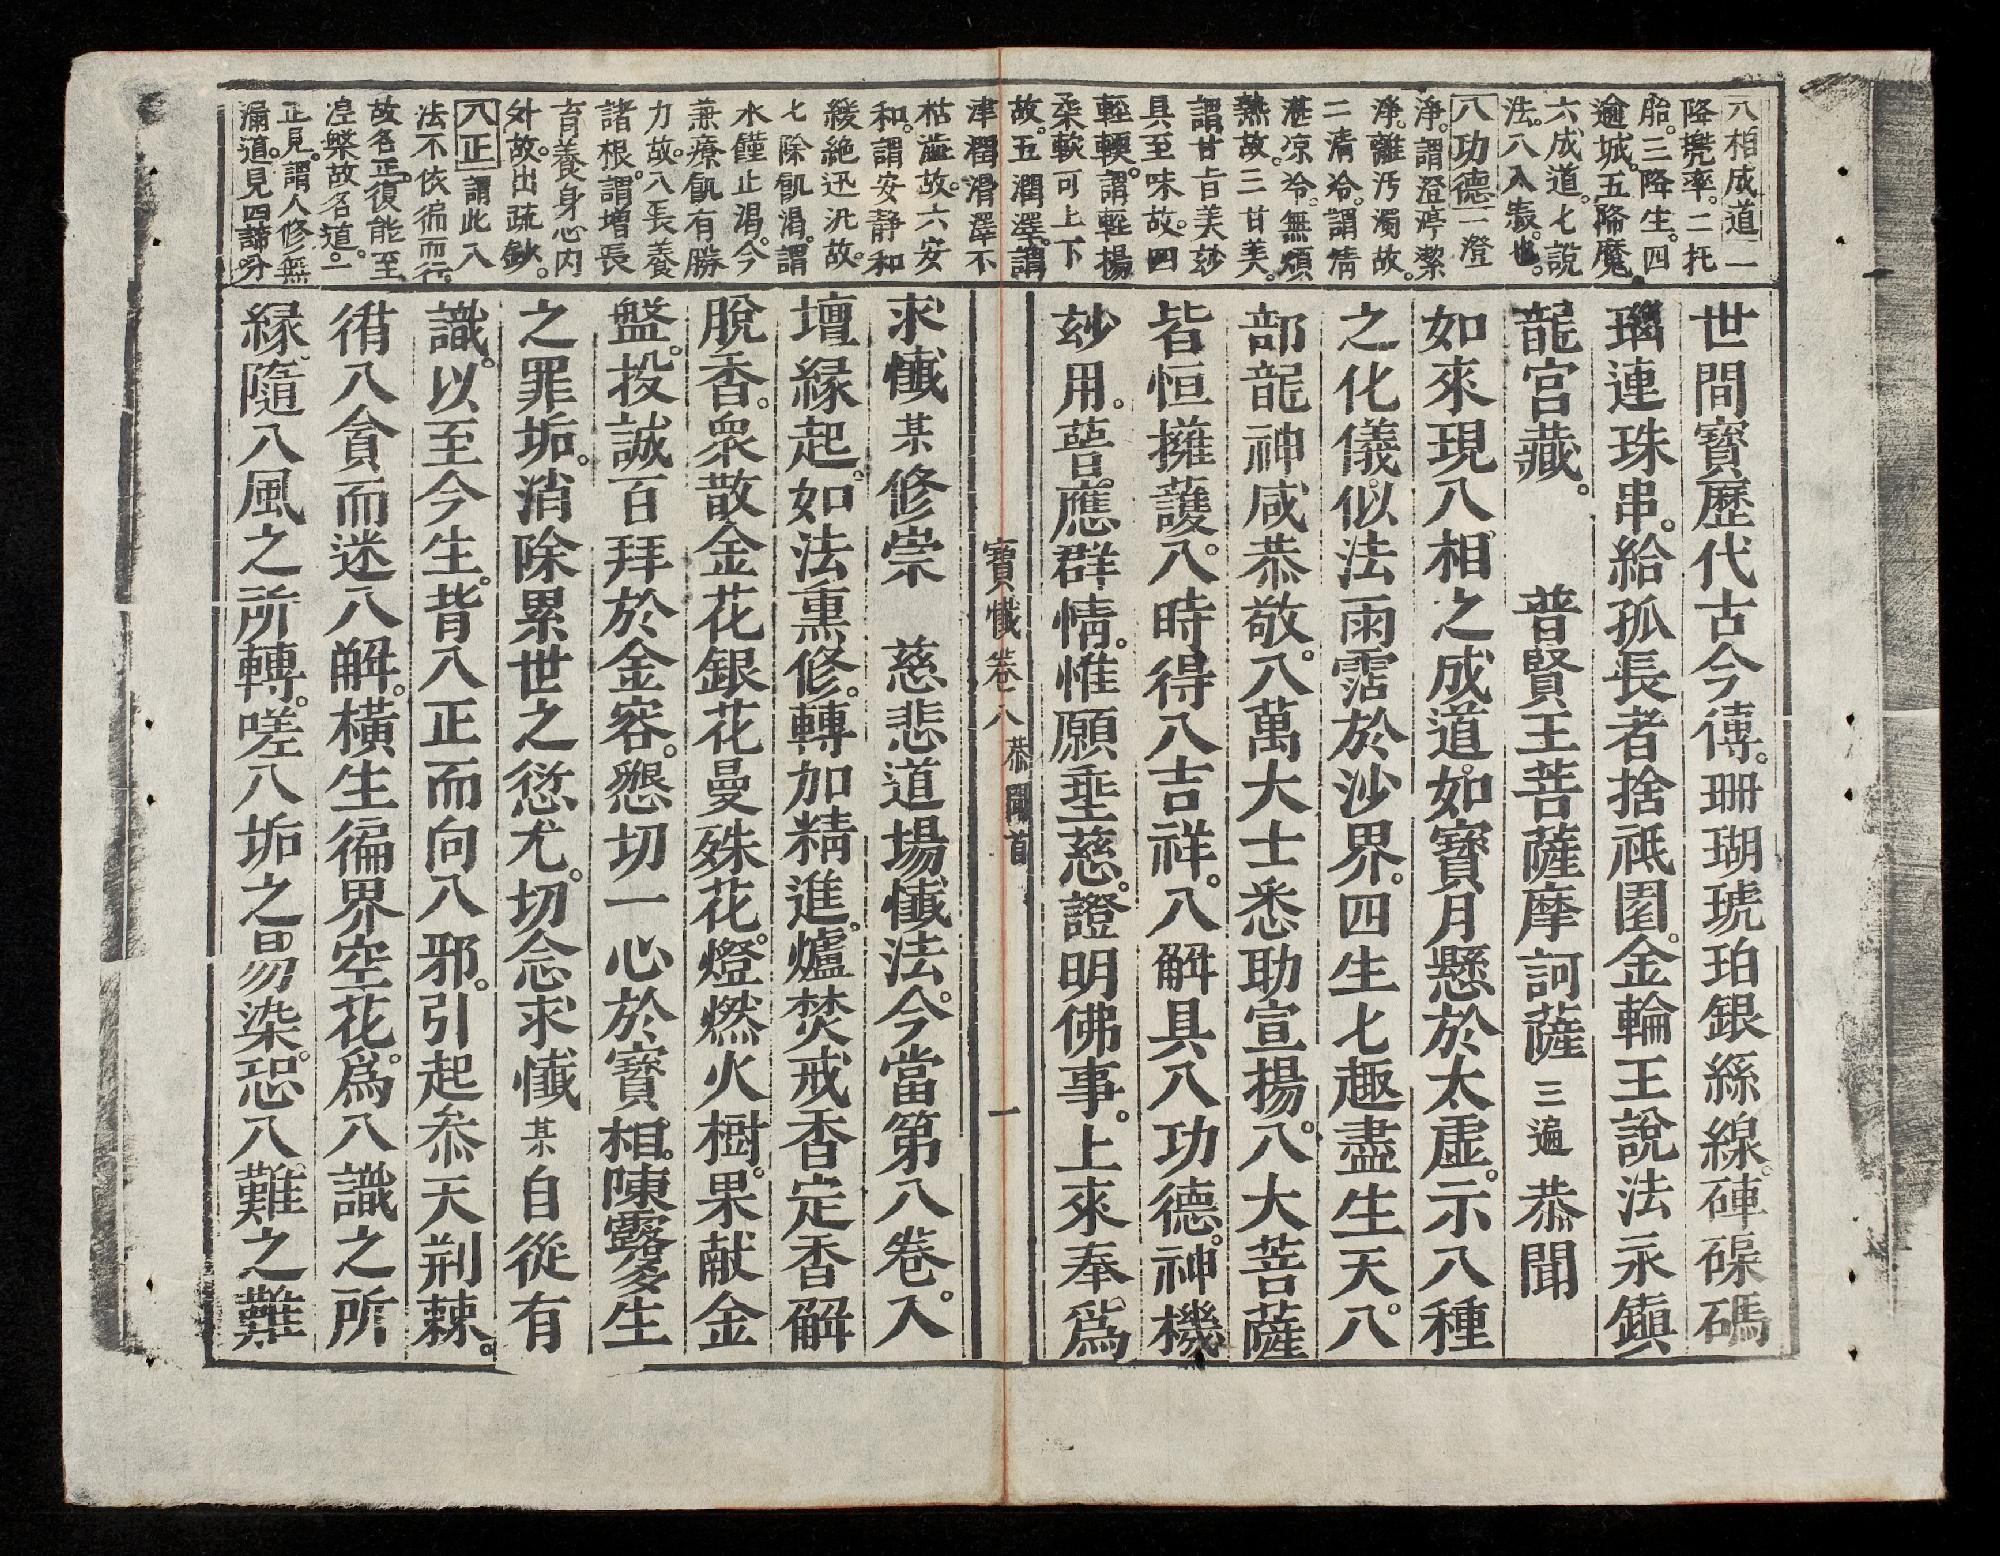 八相成道一
降兠率。二托
胎。三降生。四
逾城。五降魔。
六成道。七說
法。八入㝠也。
八功德一澄
淨。謂澄渟潔
淨。離汚濁故。
二清冷。謂清
湛凉冷。無煩
熱故。三甘美。
謂甘旨美玅
具至味故。四
輕輭。謂輕揚
柔軟可上下
故。五潤澤。謂
津潤滑澤不
枯澁故。六安
和。謂安靜和
緩絶迅汎故。
七除飢渴。謂
水僅止渴。今
兼療飢有勝
力故。八長養
諸根。謂增長
育養身心內
外故。出疏鈔。
八正謂此八
法不依徧而行。
故名正。復能至
湼槃故名道。一
正見。謂人修無
漏道。見四諦分
世間寳歷代古今傳。珊瑚琥珀銀絲線。硨磲碼
瑙連珠串。給孤長者捨祗園。金輪王說法永鎮
龍宮藏。　普賢王菩薩摩訶薩三遍恭聞
如來現八相之成道。如寳月懸於太虛。示八種
之化儀。似法雨霑於沙界。四生七趣盡生天。八
部龍神咸恭敬。八萬大士悉助宣揚。八大菩薩
皆恒擁䕶。八時得八吉祥。八解具八功德。神機
玅用。菩應群情。惟願垂慈。證明佛事。上來奉為
寶懺卷八　恭聞首　一
求懺某修崇　慈悲道場懺法。今當第八卷。入
壇緣起。如法熏修。轉加精進。爐焚戒香定香解
脫香。衆散金花銀花曼殊花。燈燃火樹。果献金
盤。投誠百拜於金容。懇切一心於寳相。陳露多生
之罪垢。消除累世之愆尤。切念求懺某自從有
識。以至今生。背八正而向八邪。引起叅天荆棘。
徇八貪而迷八解。橫生徧界空花。為八識之所
緣。隨八風之所轉。嗟八垢之易染。恐八難之難